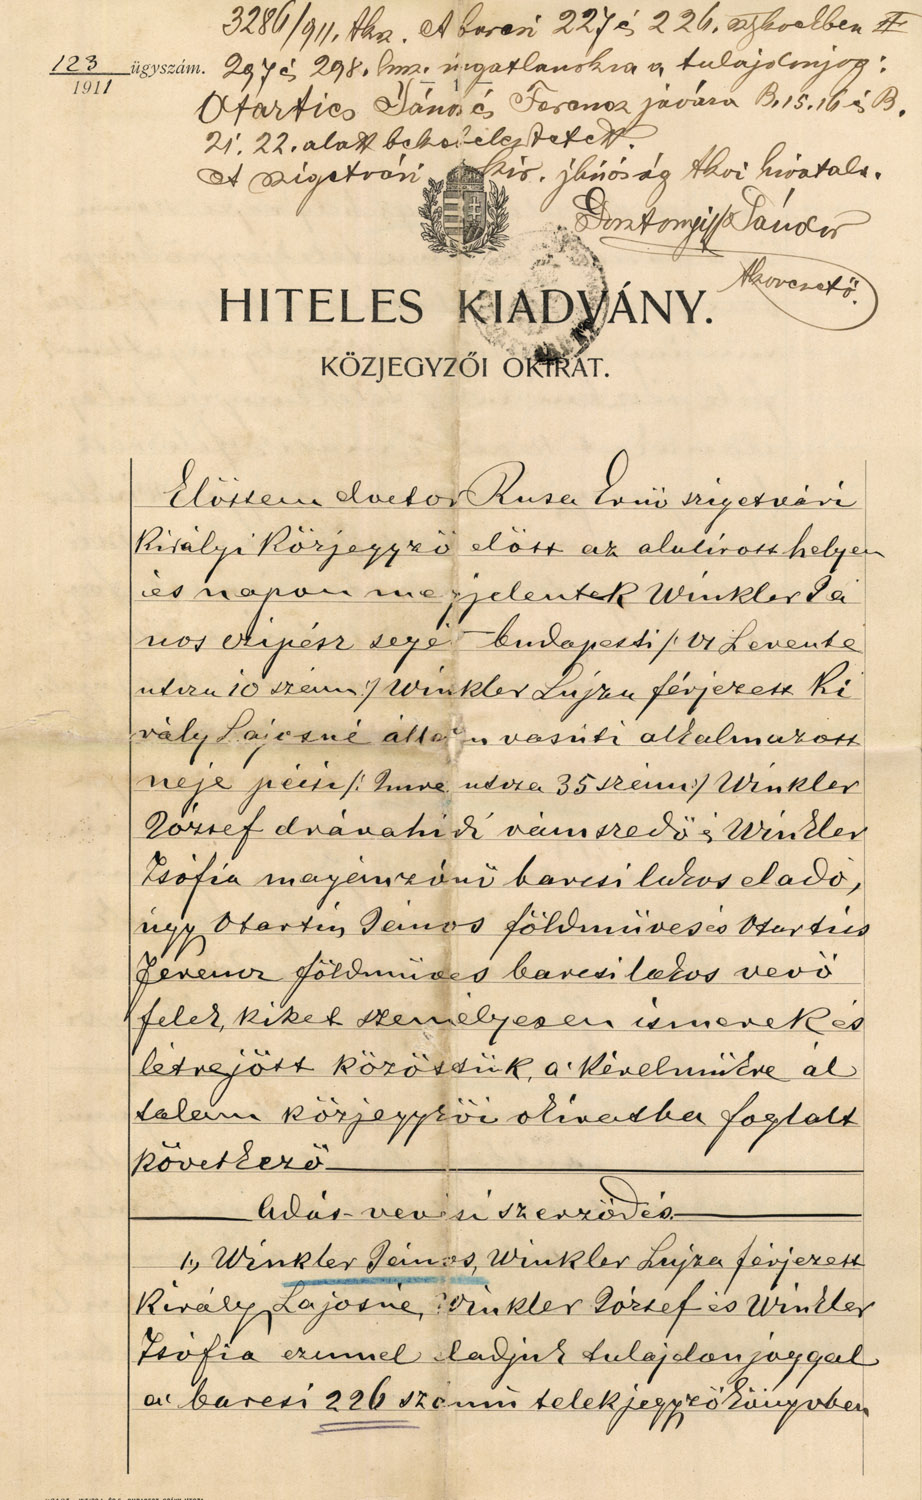 3286/911. tkv. A barcsi 227 és 226. sztkvelben II
123 ügyszám. 297 és 298. hrsz. ingatlanokra a tulajdonjog:
1911
Otártics János és Ferencz javára B. 15. 16 és B.
21. 22. alatt bekebeleztetett.
A szigetvári kir. jbiróság tkvi hivatala.
Gosztonyi Sándor
tkvvezető.
HITELES KIADVÁNY.
KÖZJEGYZŐI OKIRAT.
Előttem doctor Rusa Ernő szigetvári
királyi közjegyző előtt az alulirott helyen
és napon megjelentek Winkler Já
nos czipész segé budapesti /: VI Levente
utcza 10 szám :/ Winkler Lujza férjezett Ki
rály Lajosné állam vasúti alkalmazott
neje pécsi /: Imre utcza 35 szám :/ Winkler
József drávahidi vámszedő és Winkler
Zsófia magánzónő barcsi lakos eladó,
úgy Otartics János földmüves és Otartics
Ferencz földmüves barcsi lakos vevő
felek, kiket személyesen ismerek és
létrejött közöttük, a kérelmükre ál
talam közjegyzői okiratba foglalt
következő
Adás-vevési szerződés
1., Winkler János, Winkler Lujza férjezett
Király Lajosné, Winkler József és Winkler
Zsófia ezennel eladjuk tulajdonjoggal
a barcsi 226 számú telekjegyzőkönyvben